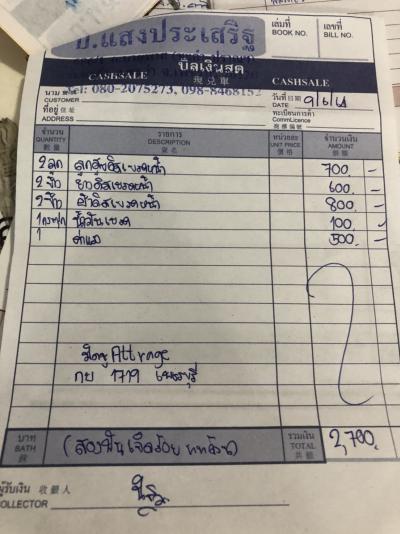 อ.แสงประเสริฐ
เล่มที่ BOOK NO.
เลขที่ BILL NO.
บิลเงินสด
CASHSALE 現兌單 CASHSALE
โทร: 080-2075273, 098-8468152
นาม CUSTOMER
วันที่ DATE 9/6/64
ที่อยู่ 住址 ADDRESS
ทะเบียนการค้า CommLicence 商標編號
จำนวน QUANTITY 數量
รายการ DESCRIPTION 貨名
หน่วยละ UNIT PRICE 價格
จำนวนเงิน AMOUNT 銀額
2 ลูก ลูกสูบดิสเบรคหน้า 700 -
2 ยางดิสเบรคหน้า 600 -
2 ผ้าดิสเบรคหน้า 800 -
1 น้ำมันเบรค 100 -
1 ค่าแรง 500 -
มิตซู Attrage
กย 1719 เพชรบุรี
บาท BATH 銖
(สองพันเจ็ดร้อยบาทถ้วน)
รวมเงิน TOTAL 共銀
2,700.
ผู้รับเงิน 收銀人
COLLECTOR